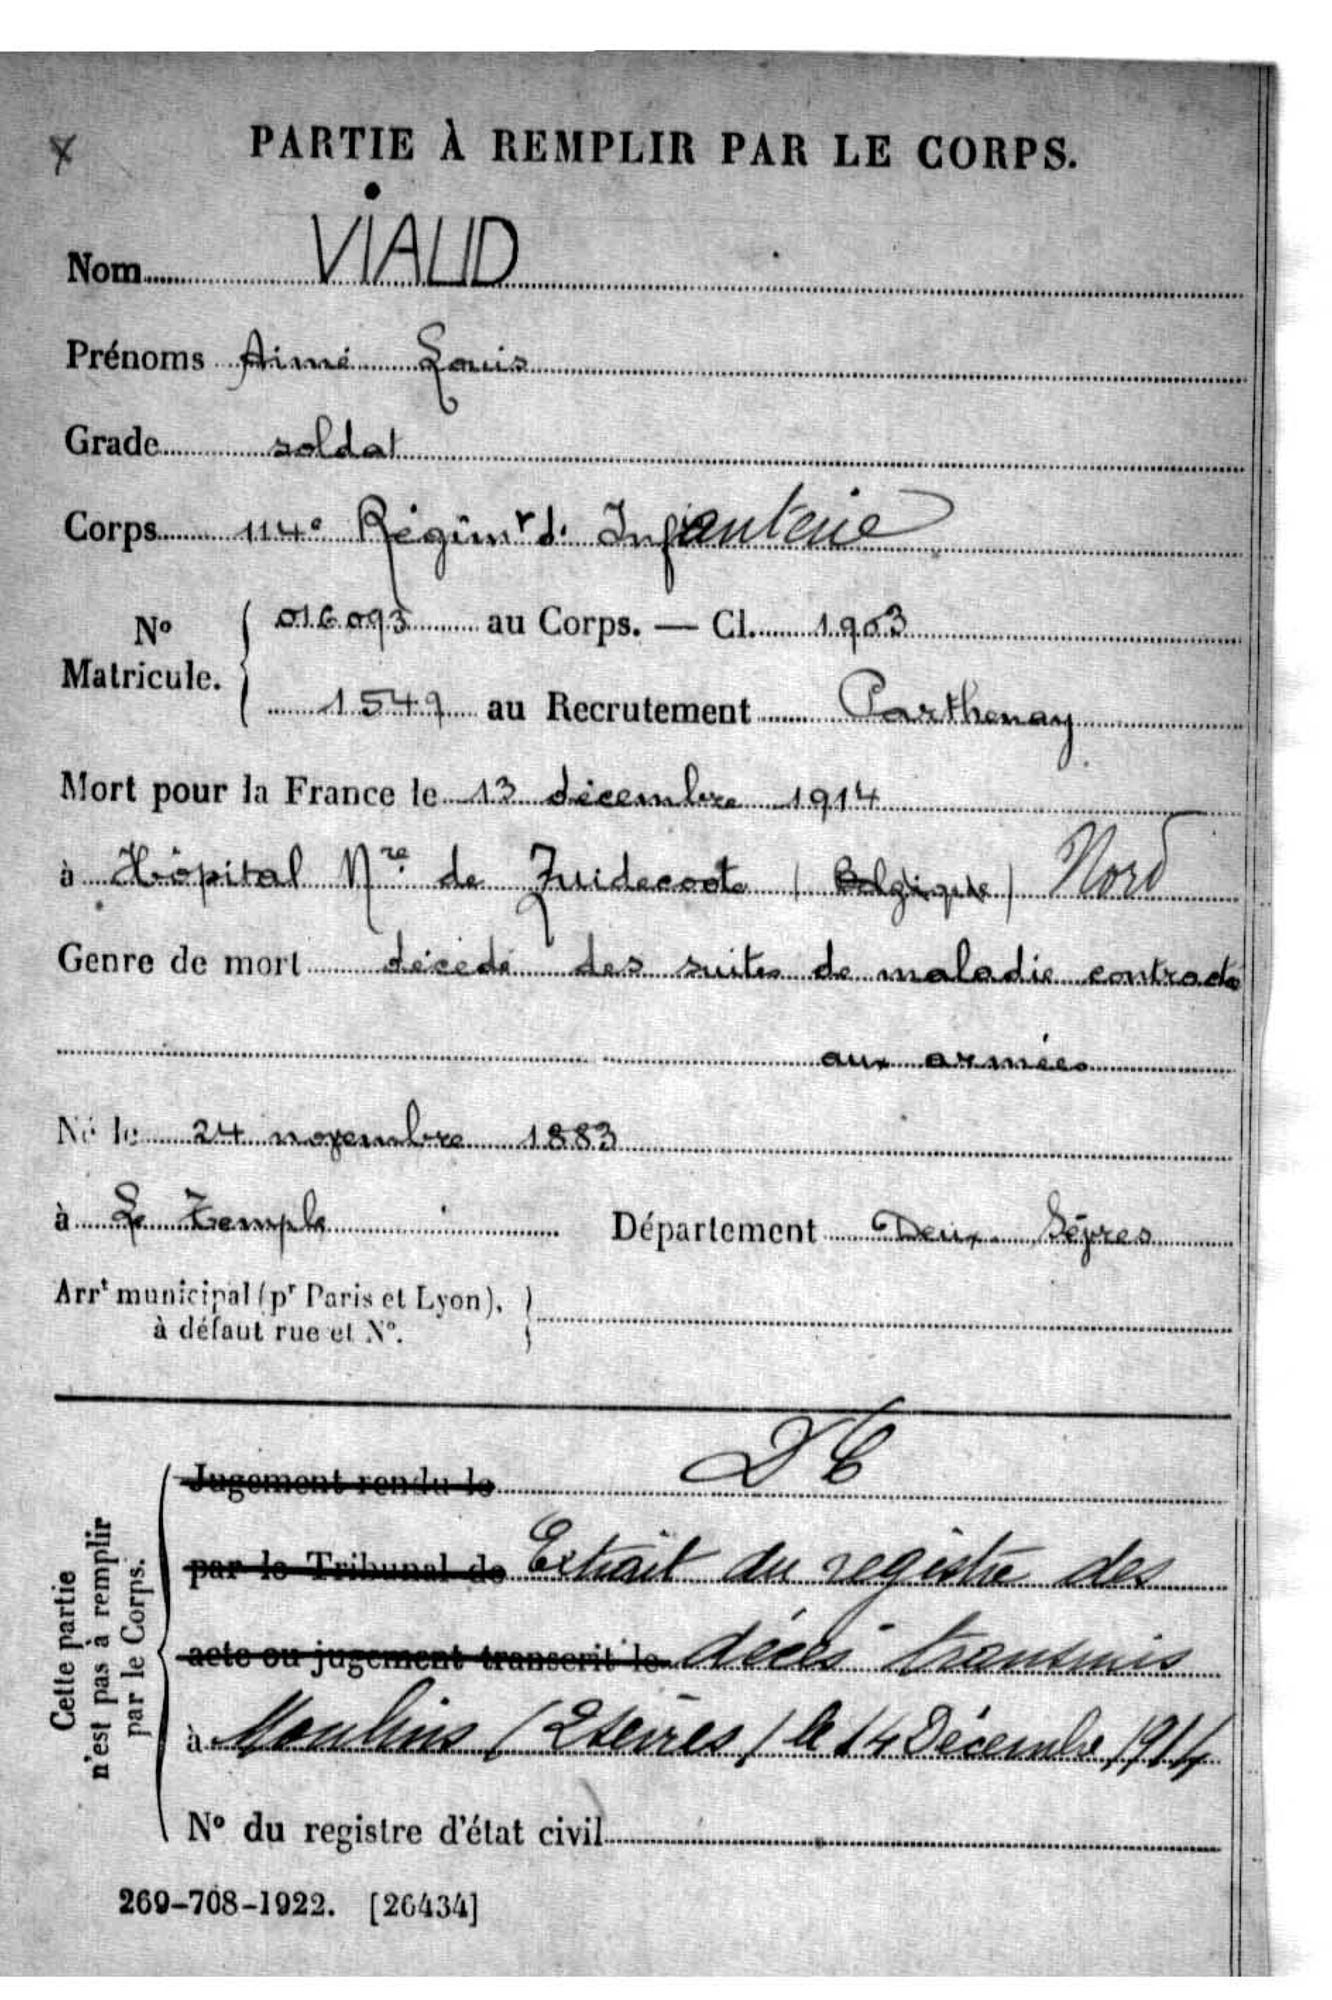 PARTIE À REMPLIR PAR LE CORPS.
Nom VIAUD
Prénoms Aimé Louis
Grade soldat
Corps 114e Régimt d' Infanterie
No Matricule. 016093 au Corps. — Cl. 1903
1549 au Recrutement Parthenay
Mort pour la France le 13 décembre 1914
à Hôpital Mre de Zuidecoote (Belgique) Nord
Genre de mort décédé des suites de maladie contracte
aux armées
Né le 24 novembre 1883
à Le Temple Département Deux Sèvres
Arrt municipal (pr Paris et Lyon),
à défaut rue et No.
Cette partie
n'est pas à remplir
par le Corps.
Jugement rendu le
par le Tribunal de Extrait du registre des
acte ou jugement transcrit le décès transmis
à Moulins (2 Sèvres) le 14 Décembre 1914
No du registre d'état civil
269-708-1922. [26434]